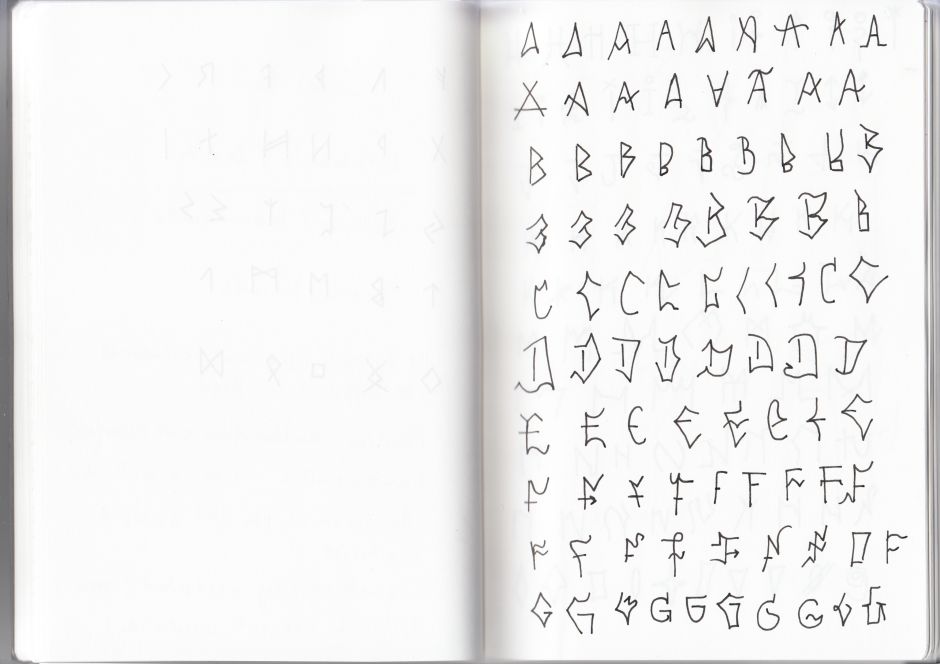 A A A A A A A A A
A A A A A A A A
B B B B B B B B B
B B B B B B B B
C C C C C C C C C C
D D D D D D D D
E E E E E E E E
F F F F F F F F F
F F F F F F F F F
G G G G G G G G G G